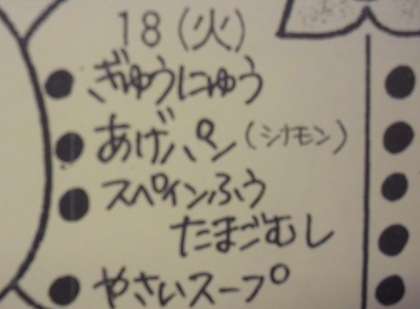 18(火)
ぎゅうにゅう
あげパン(シナモン)
スペインふう
たまごむし
やさいスープ